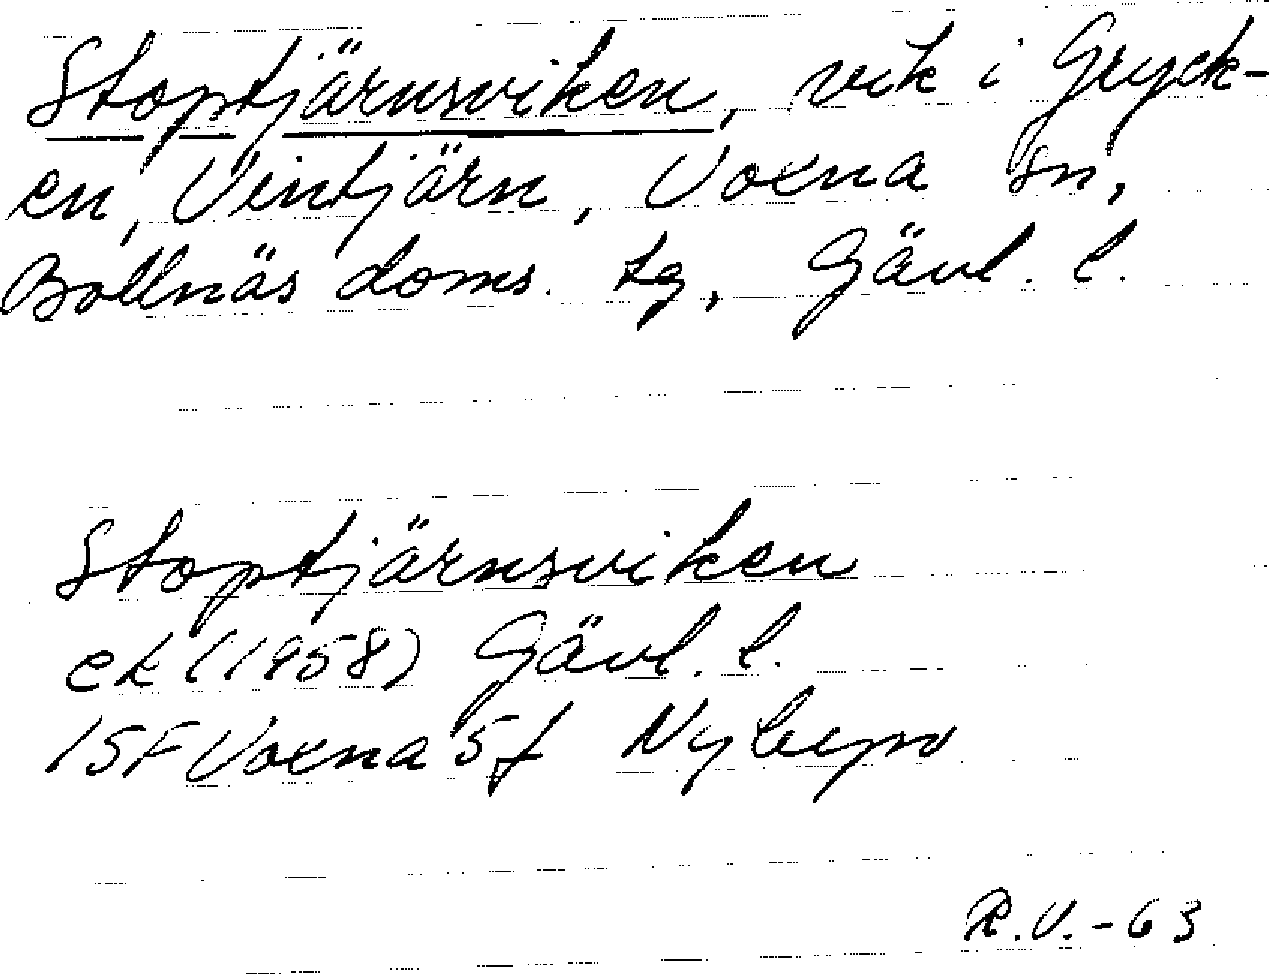 Stoptjärnsviken, vik i Gryck-
en, Vintjärn, Voxna sn,
Bollnäs doms. tg, Gävl. l.
Stoptjärnsviken
ek (1958) Gävl. l.
15F Voxna 5f
R.V.-63